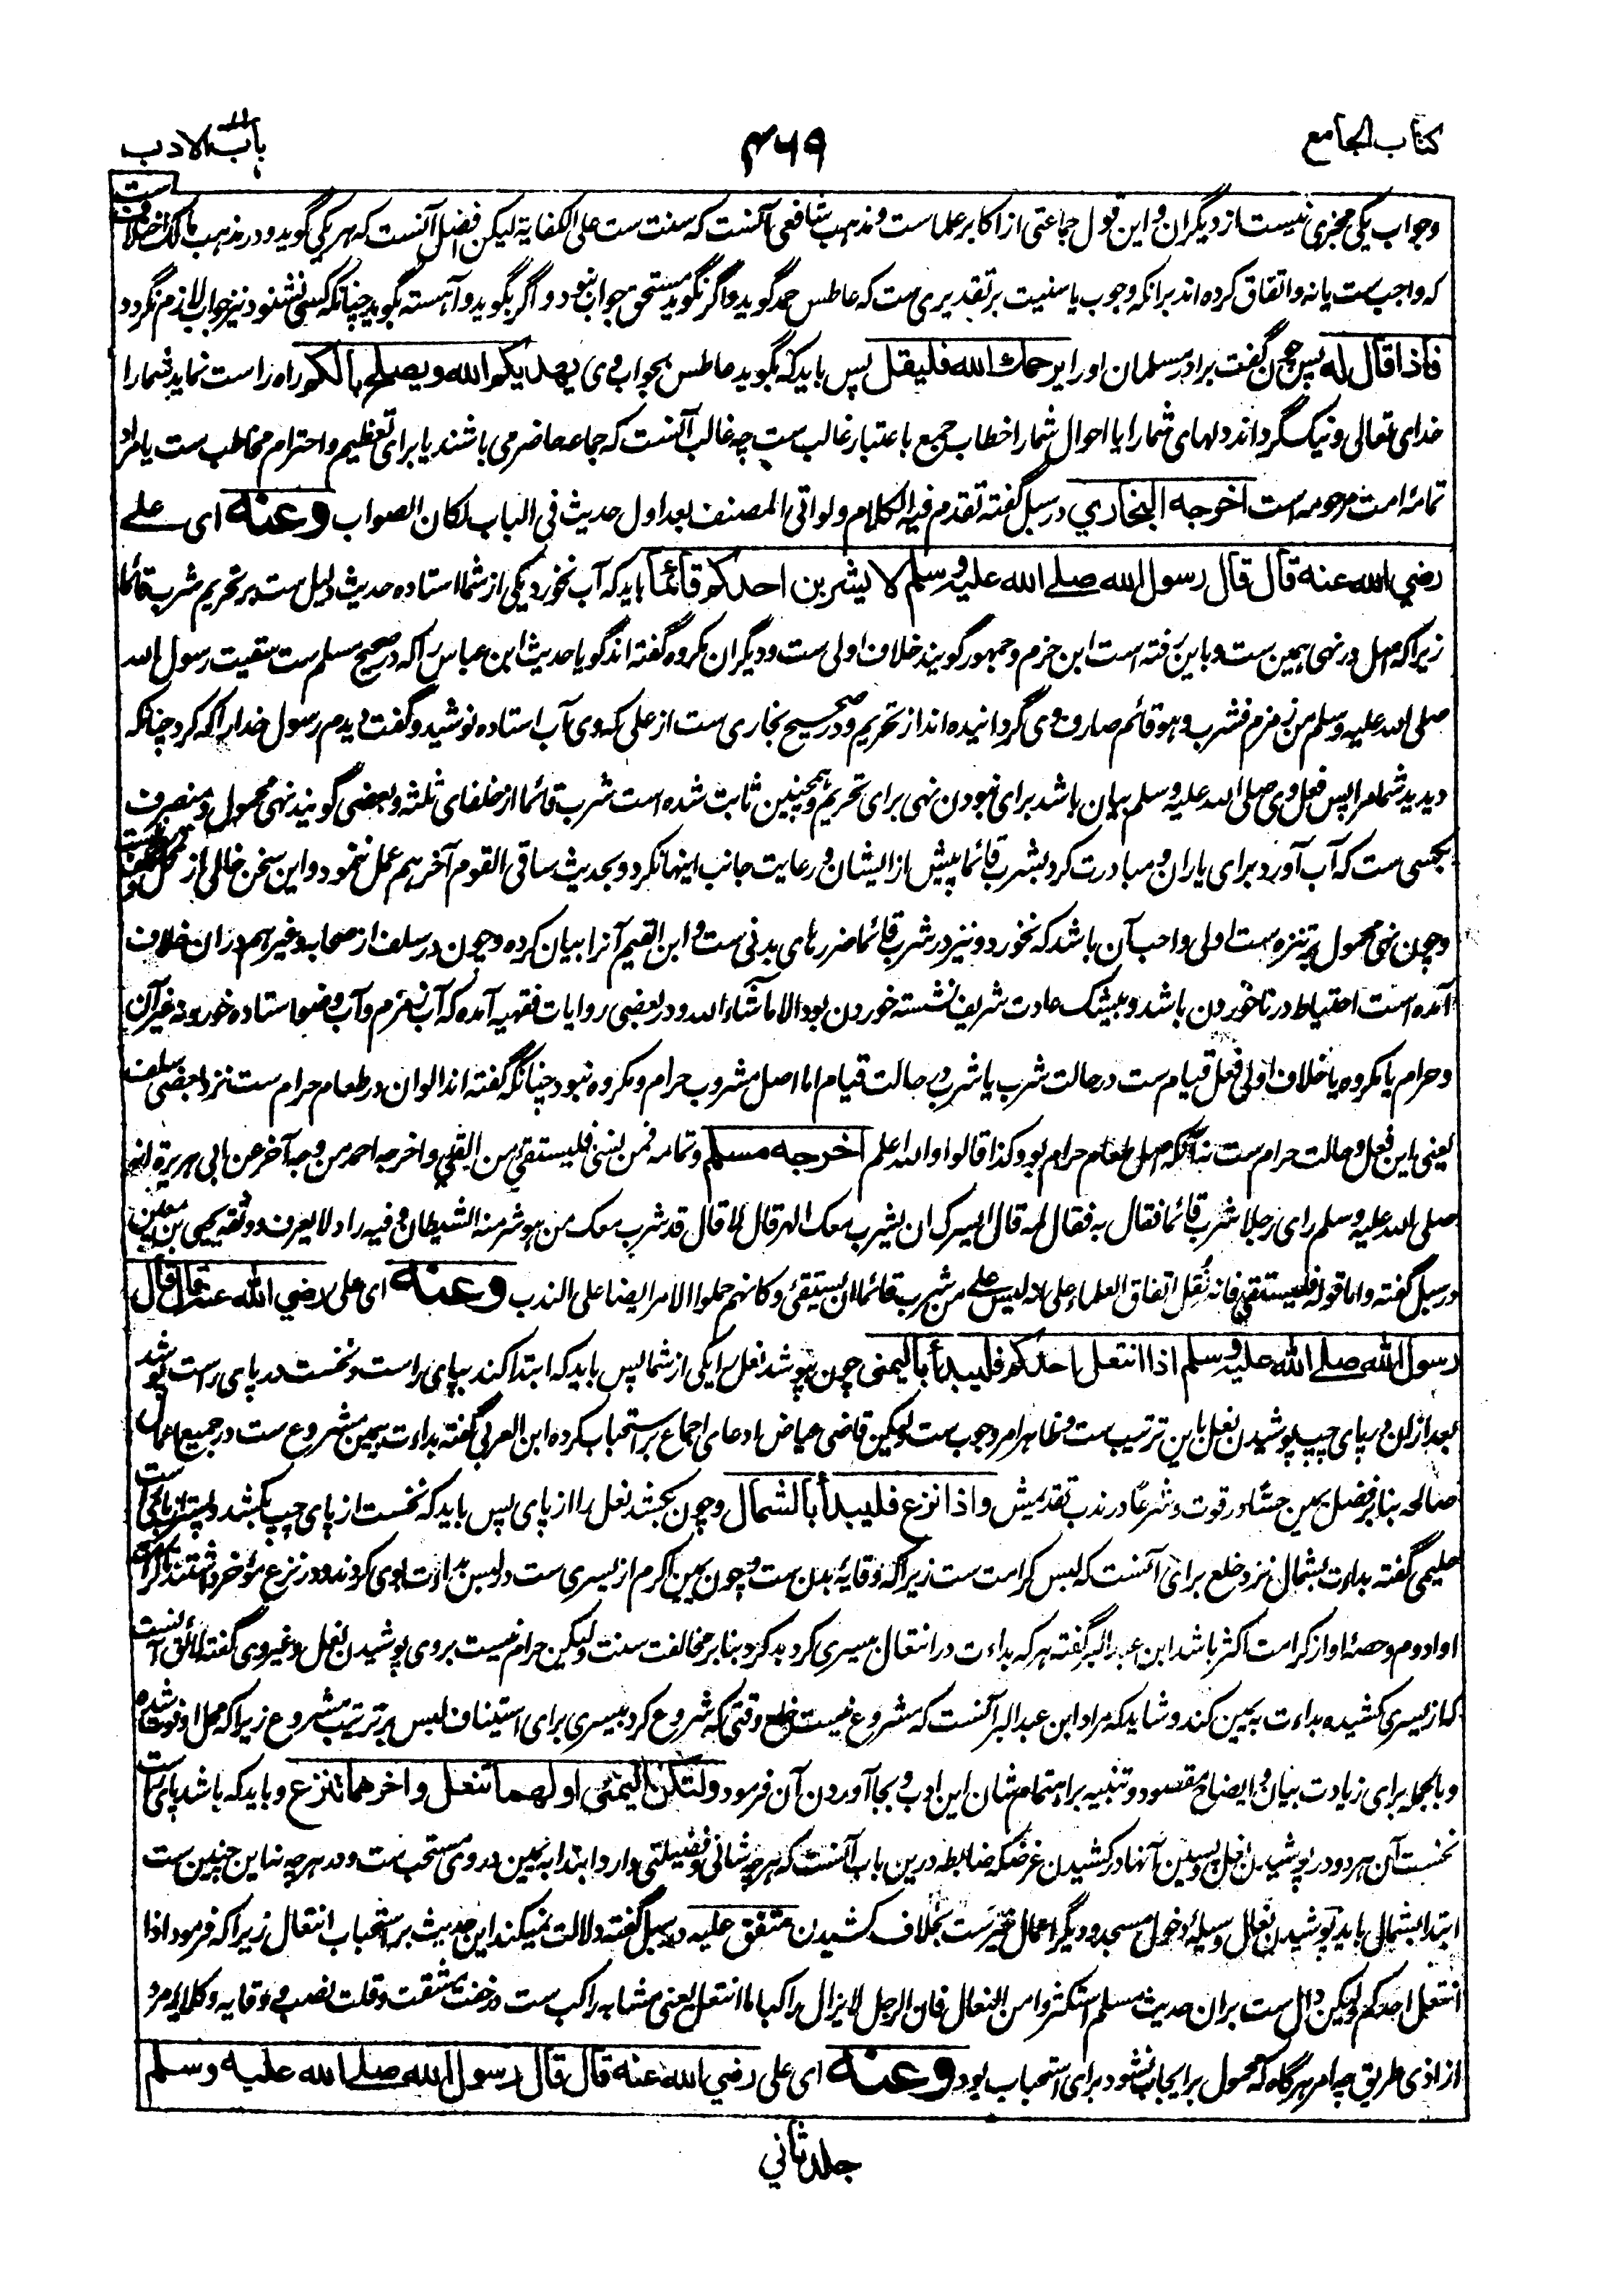 كتاب الجامع
۴۶۹
باب الادب
وجواب یکی مجزی نیست از دیگران و این قول جماعتی از اکابر علماست و مذهب شافعی آنست که سنت ست علی الکفایة لیکن افضل آنست که هر یکی گوید و در مذهب مالک اختلاف ست
که واجب ست یا نه و اتفاق کرده اند برانکه وجوب یا سنیت بر تقدیری ست که عاطس حمد گوید و اگر نگوید مستحق جواب نبود و اگر بگوید و آهسته بگوید چنانکه کسی نشنود نیز جواب لازم نگردد
فاذا قال له پس چون گفت برادر مسلمان او را یرحمك الله فلیقل پس باید که بگوید عاطس بجواب وی یهدیکم الله ویصلح بالکم راه راست نماید شما را
خدای تعالی و نیک گرداند دلهای شما را یا احوال شما را خطاب جمع باعتبار غالب ست چه غالب آنست که جماعه حاضر می باشند یا برای تعظیم و احترام مخاطب ست یا مراد
تمامهٔ امت مرحومه است اخرجه البخاري در سبل گفته تقدم فیه الکلام ولو اتی المصنف بعد اول حدیث فی الباب لکان الصواب وعنه ای علی
رضي الله عنه قال قال رسول الله صلى الله عليه وسلم لا يشربن احدكم قائما باید که آب نخورد یکی از شما استاده حدیث دلیل ست بر تحریم شرب قائما
زیرا که اصل در نهی همین ست و باین رفته است ابن حزم و جمهور گویند خلاف اولی ست و دیگران مکروه گفته اند گویا حدیث ابن عباس را که در صحیح مسلم ست سقیت رسول الله
صلی الله علیه وسلم من زمزم فشرب وهو قائم صارف وی گردانیده اند از تحریم و در صحیح بخاری ست از علی که وی آب استاده نوشید و گفت دیدم رسول خدا را که کرد چنانکه
دیدید شما مرا پس فعل وی صلی الله علیه وسلم بیان باشد برای نبودن نهی برای تحریم و همچنین ثابت شده است شرب قائما از خلفای ثلثه و بعضی گویند نهی محمول و منصرف
بکسی ست که آب آورد برای یاران و مبادرت کرد بشرب قائما پیش از ایشان و رعایت جانب اینها نکرد و بحدیث ساقی القوم آخرهم عمل ننمود و این سخن خالی از تکلف نیست
و چون نهی محمول بر تنزه ست اولی واحب آن باشد که نخورد و نیز در شرب قائما ضررهای بدنی ست و ابن القیم آنرا بیان کرده و چون در سلف از صحابه و غیرهم دران خلاف
آمده است احتیاط در ناخوردن باشد و بیشک عادت شریف نشسته خوردن بود الا ما شاء الله و در بعضی روایات فقهیه آمده که آب زمزم و آب وضو استاده خورد نه غیر آن
و حرام یا مکروه یا خلاف اولی فعل قیام ست در حالت شرب یا شرب در حالت قیام اما اصل مشروب حرام و مکروه نبود چنانکه گفته اند الوان در طعام حرام ست نزد بعضی سلف
یعنی این فعل و حالت حرام ست نه آنکه اصل طعام حرام بود کذا قالوا والله اعلم اخرجه مسلم وتمامه فمن نسی فلیستقئ من القئ واخرجه احمد من وجه آخر عن ابی هریرة انه
صلی الله علیه وسلم رای رجلا شرب قائما فقال به فقال لمه قال ایسرک ان یشرب معک الهر قال لا قال قد شرب معک من هو شر منه الشیطان وفیه راو لا یعرف ووثقه یحیی بن معین
در سبل گفته واما قوله فلیستقئ فانه نقل اتفاق العلماء علی انه لیس علی من شرب قائما ان یستقئ وکانهم حملوا الامر ایضا علی الندب وعنه ای علی رضي الله عنه قال قال
رسول الله صلى الله عليه وسلم اذا انتعل احدكم فليبدأ باليمنى چون بپوشد نعل را یکی از شما پس باید که ابتدا کند بپای راست و نخست در پای راست پوشد
بعد ازان در پای چپ پوشیدن نعل باین ترتیب ست و ظاهر امر وجوب ست ولیکن قاضی عیاض ادعای اجماع بر استحباب کرده ابن العربی گفته بداءت بیمین مشروع ست در جمیع اعمال
صالحه بنا بر فضل یمین حسّا در قوت و شرعا در ندب تقدیمش واذا نزع فليبدأ بالشمال و چون بکشد نعل را از پای پس باید که نخست از پای چپ بکشد و پستر از پای راست
حلیمی گفته بداءت بشمال نزد خلع برای آنست که لبس کرامت ست زیرا که وقایهٔ بدن ست و چون یمین اکرم از یسری ست در لبس بداءت بوی کردند و در نزع مؤخر داشتند تا کرامت
او ادوم و حصهٔ او از کرامت اکثر باشد ابن عبد البر گفته هر که بداءت در انتعال بیسری کرد بد کرد بنا بر مخالفت سنت ولیکن حرام نیست بر وی پوشیدن نعل و غیر وی گفته لائق آنست
که از یسری کشیده بداءت به یمین کند و شاید که مراد ابن عبد البر آنست که مشروع نیست خلع وقتی که شروع کرد بیسری برای استیناف لبس بر ترتیب مشروع زیرا که محل او فوت شده
و بالجمله برای زیادت بیان و ایضاح مقصود و تنبیه بر اهتمام شان این ادب و بجا آوردن آن فرمود ولتكن اليمنى اولهما تنعل واخرهما تنزع و باید که باشد پای راست
نخست آن هر دو در پوشیدن نعل و پسین آنها در کشیدن غرضکه ضابطه درین باب آنست که هر چه شانی و فضیلتی دارد ابتدا به یمین در وی مستحب ست و در هر چه نه این چنین ست
ابتدا بشمال باید پوشیدن نعال وسیلهٔ دخول مسجد و دیگر اعمال خیر ست بخلاف کشیدن متفق عليه در سبل گفته دلالت نمیکند این حدیث بر استحباب انتعال زیرا که فرمود اذا
انتعل احدکم ولیکن دال ست بران حدیث مسلم استکثروا من النعال فان الرجل لا یزال راکبا ما انتعل یعنی مشابه راکب ست در خفت مشقت و قلت نصب و وقایه وکلا یه مرد
از اذی طریق چه امر هرگاه که محمول بر ایجاب نشود برای استحباب بود وعنه ای علی رضي الله عنه قال قال رسول الله صلى الله عليه وسلم
جلد ثاني